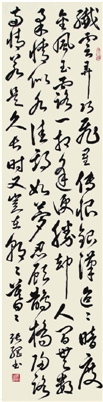 纖雲弄巧飛星傳恨銀漢迢迢暗度
金風玉露一相逢便勝却人間無數
柔情似水佳期如夢忍顧鵲橋歸路
兩情若是久長時又豈在朝朝暮暮